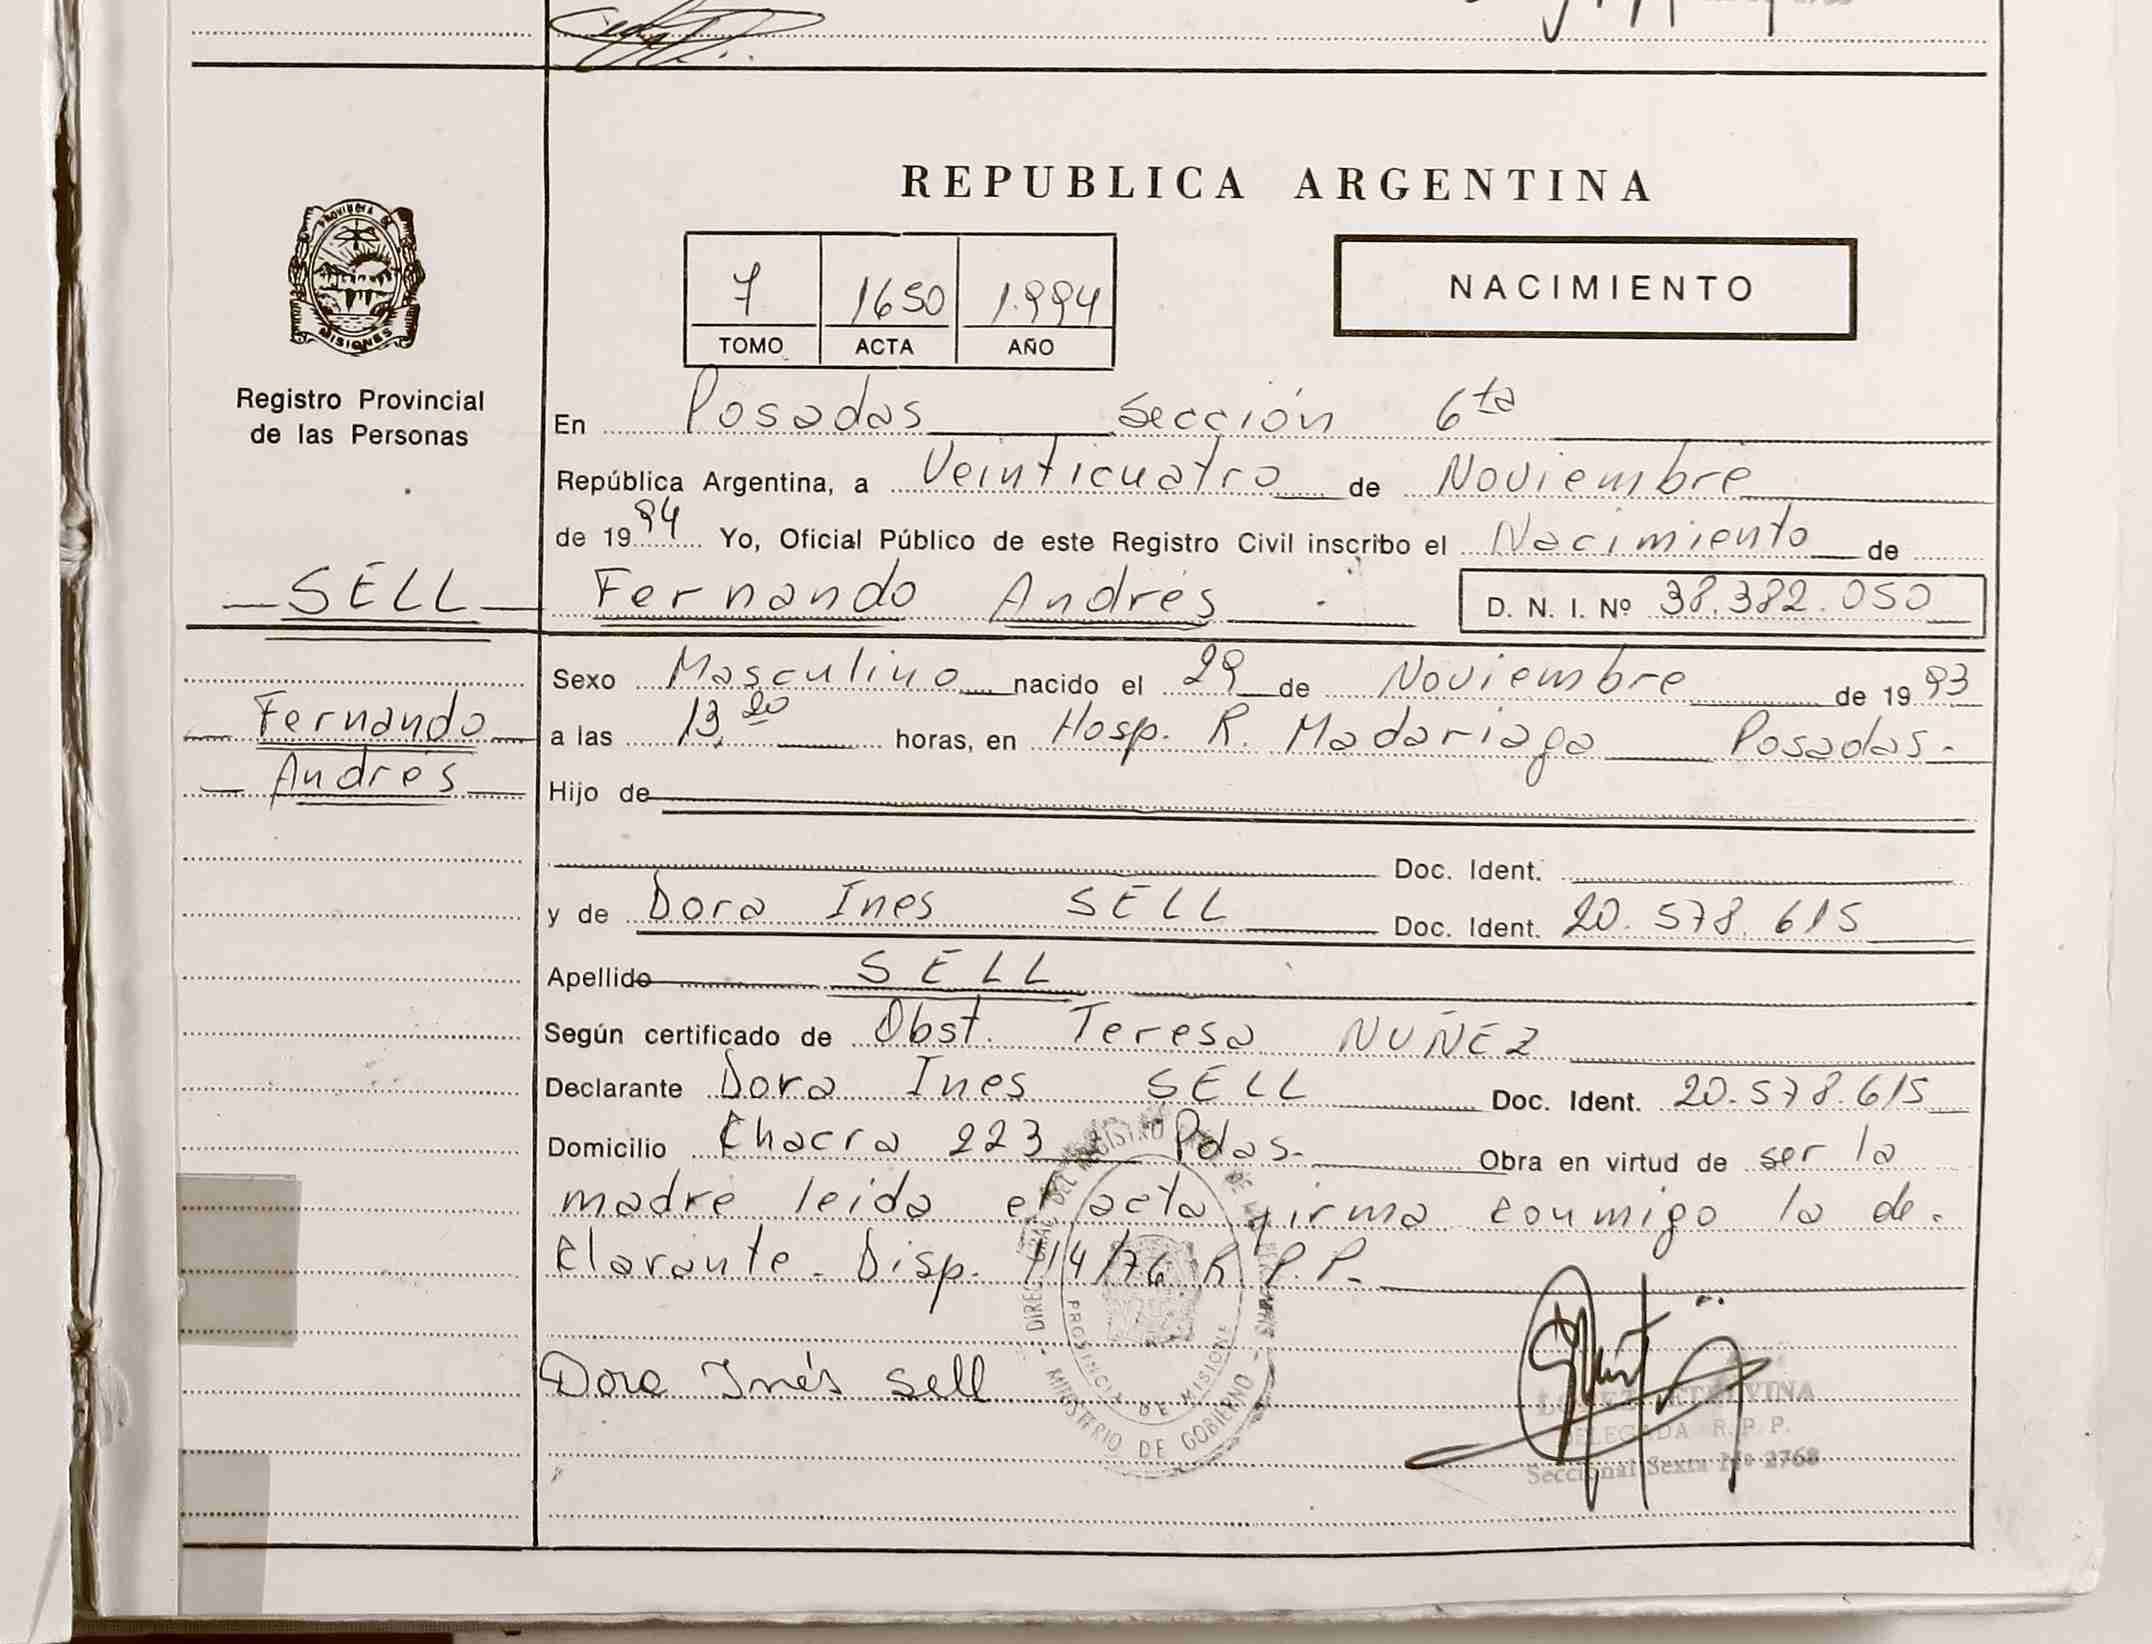 REPUBLICA ARGENTINA
PROVINCIA DE
MISIONES
7 1650 1.994
TOMO ACTA AÑO
NACIMIENTO
Registro Provincial
de las Personas
En Posadas Sección 6ta
República Argentina, a Veinticuatro de Noviembre
de 1994 Yo, Oficial Público de este Registro Civil inscribo el Nacimiento de
SELL Fernando Andrés D. N. I. Nº 38.382.050
Sexo Masculino nacido el 29 de Noviembre de 1993
Fernando
a las 13,20 horas, en Hosp. R. Madariaga Posadas.
Andrés
Hijo de
Doc. Ident.
y de Dora Ines SELL Doc. Ident. 20.578.615
Apellido SELL
Según certificado de Obst. Teresa NUÑEZ
Declarante Dora Ines SELL Doc. Ident. 20.578.615
Domicilio Chacra 223 Pdas. Obra en virtud de ser la
madre leida el acta firma conmigo la de-
clarante. Disp. 114/76 R.P.P.
Dora Inés Sell
PROVINCIA DE MISIONES
MINISTERIO DE GOBIERNO
DELEGADA R. P. P.
Seccional Sexta Nº 2768